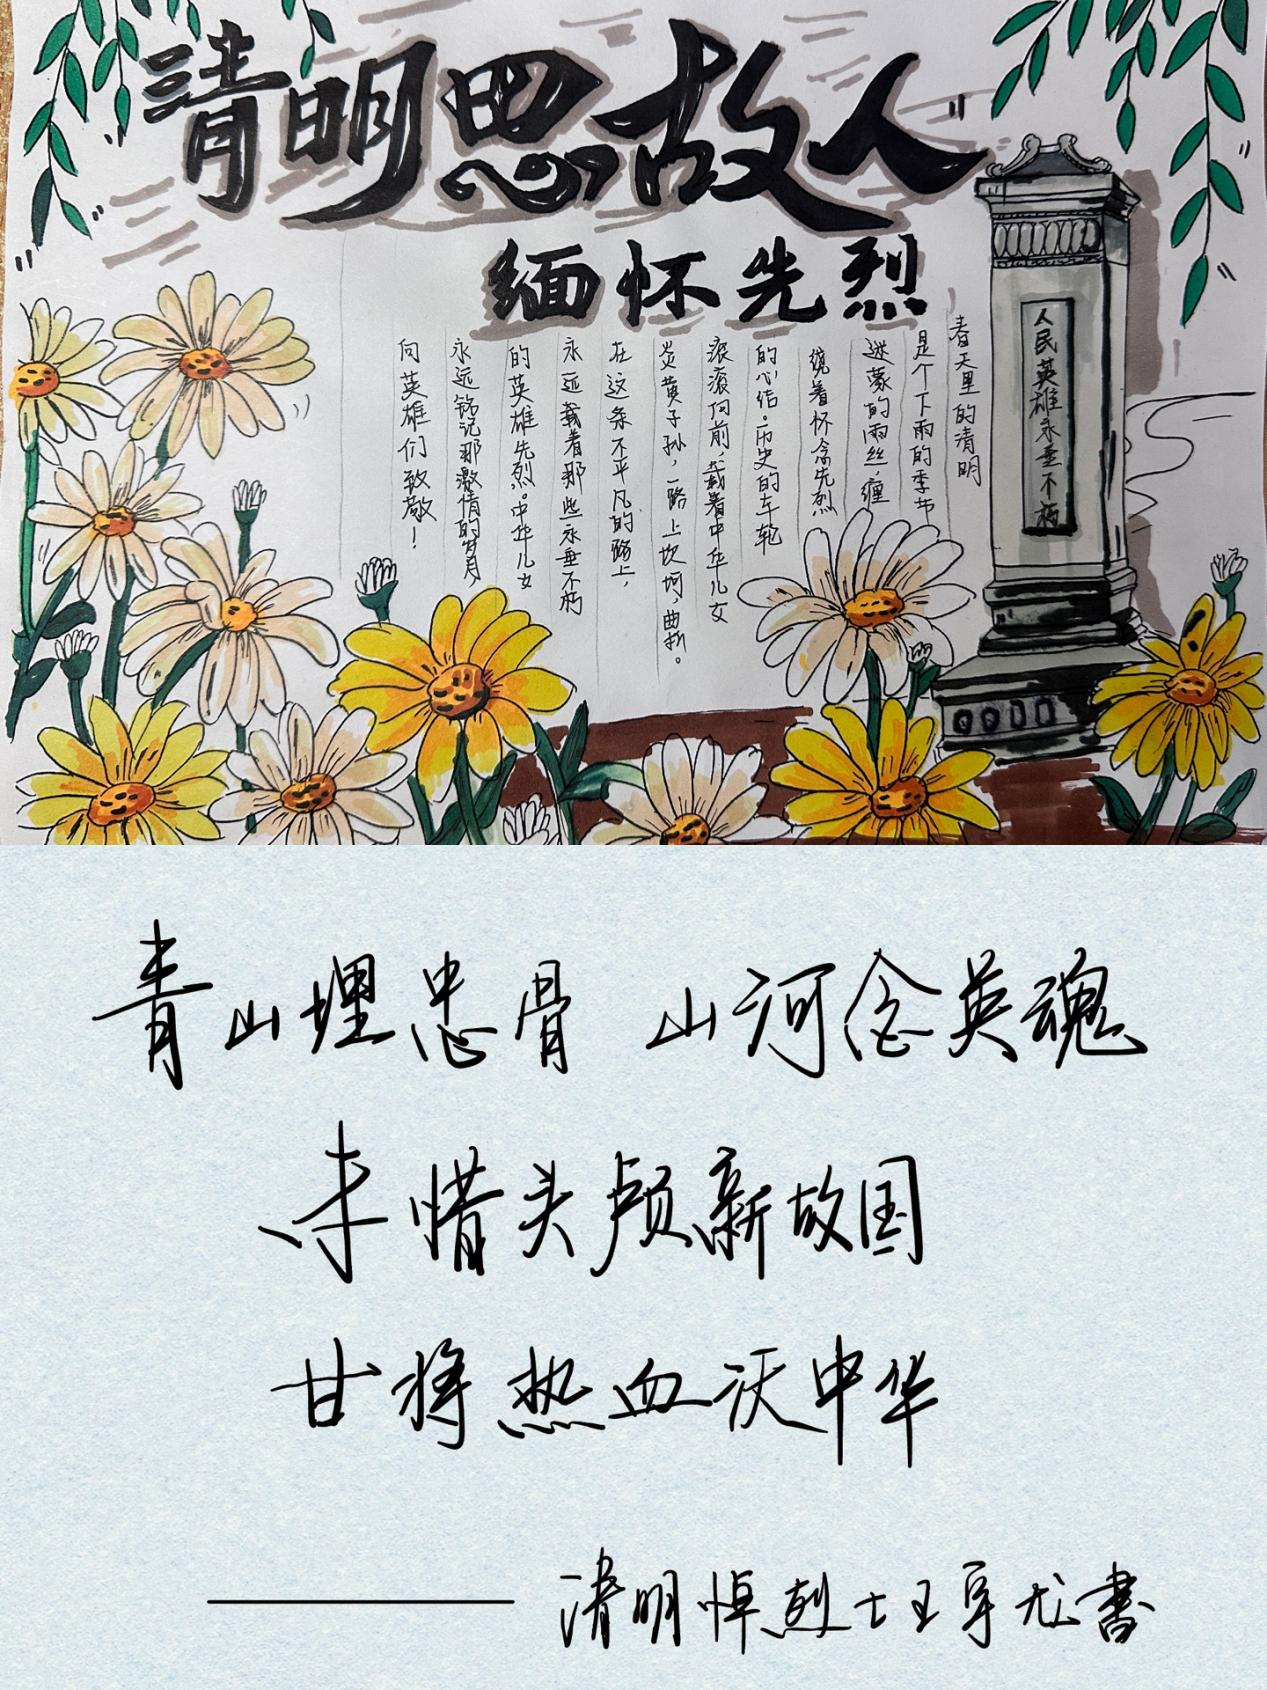 清明思故人
缅怀先烈
人民英雄永垂不朽
春天里的清明
是个下雨的季节
迷蒙的雨丝,缠
绕着怀念先烈
的心结。历史的车轮
滚滚向前,载着中华儿女
炎黄子孙,一路上坎坷,曲折。
在这条不平凡的路上,
永远载着那些永垂不朽
的英雄先烈。中华儿女
永远铭记那激情的岁月,
向英雄们致敬!
青山埋忠骨 山河念英魂
未惜头颅新故国
甘将热血沃中华
清明悼烈士王孚尤書